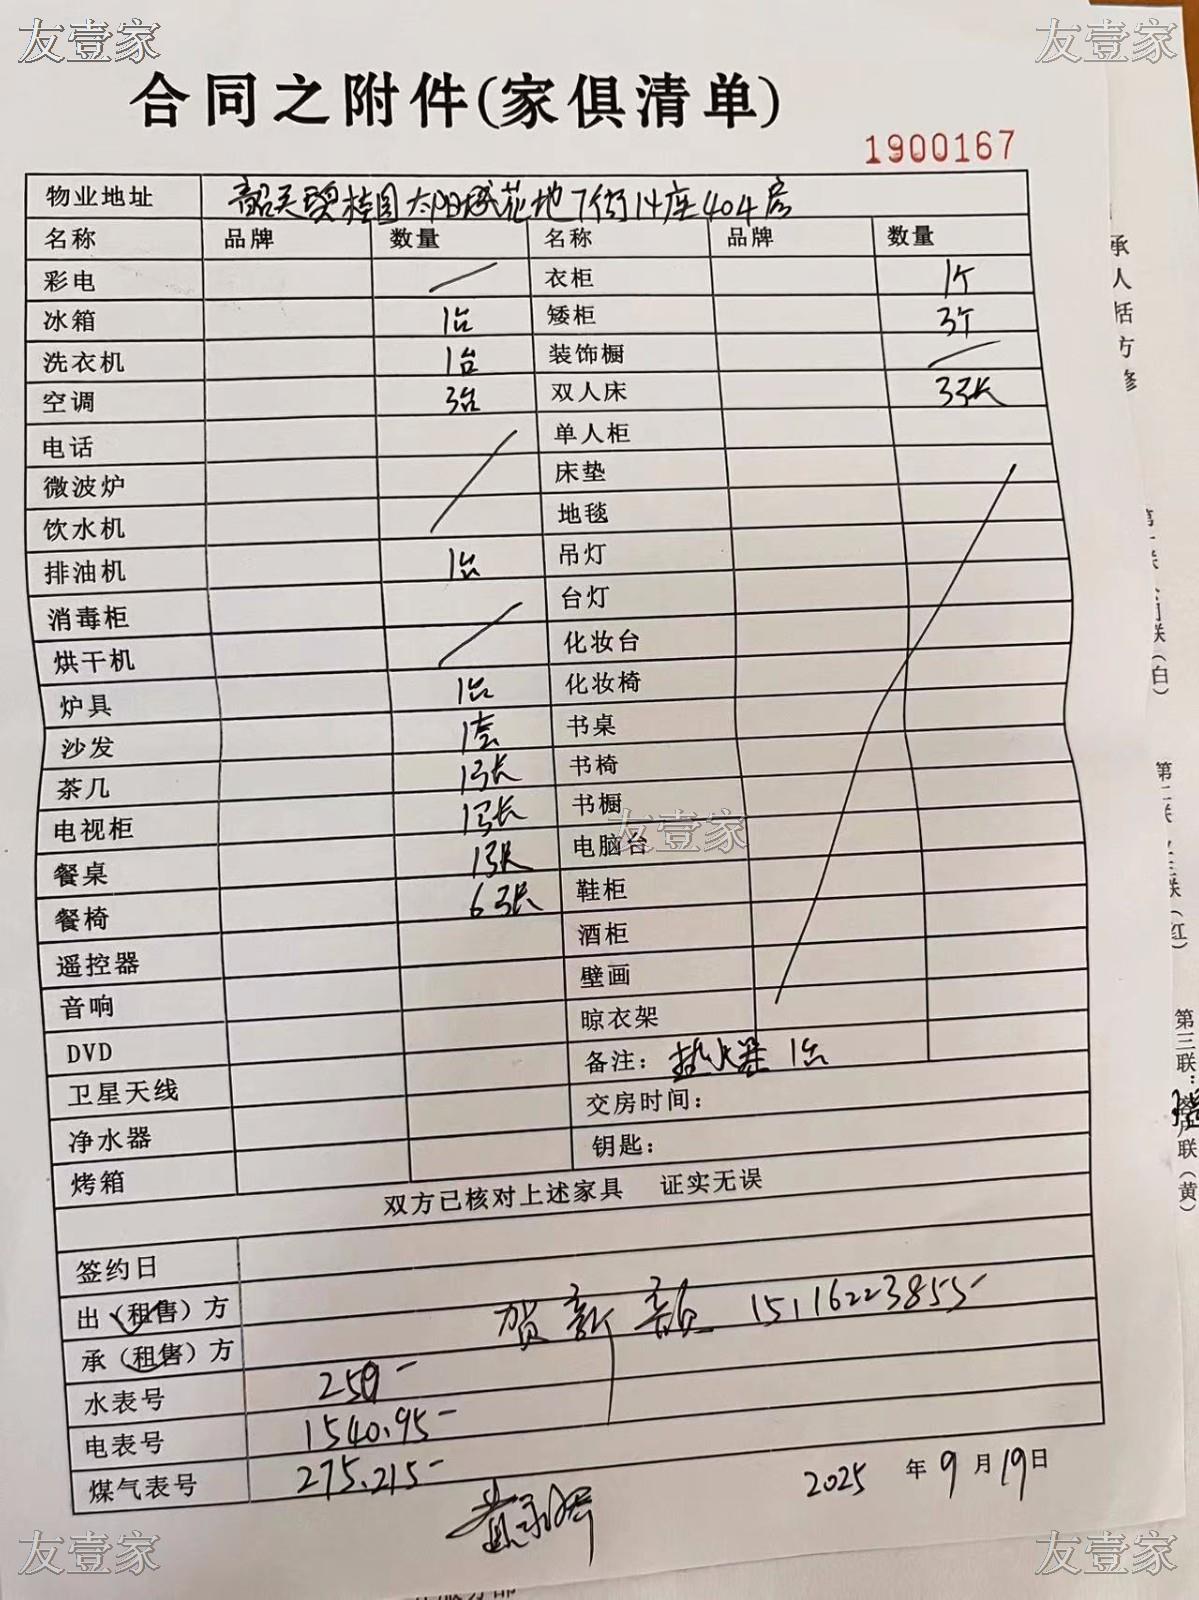 友壹家 友壹家
合同之附件(家俱清单)
1900167
物业地址 韶关碧桂园太阳城花地7街14座404房
名称 品牌 数量 名称 品牌 数量
彩电 衣柜 1个
冰箱 1台 矮柜 3个
洗衣机 1台 装饰橱
空调 3台 双人床 3张
电话 单人柜
微波炉 床垫
饮水机 地毯
排油机 1台 吊灯
消毒柜 台灯
烘干机 化妆台
炉具 1台 化妆椅
沙发 1套 书桌
茶几 1张 书椅
电视柜 1张 书橱
友壹家
餐桌 1张 电脑台
餐椅 6张 鞋柜
遥控器 酒柜
音响 壁画
DVD 晾衣架
卫星天线 备注：热水器 1台
净水器 交房时间：
烤箱 钥匙：
双方已核对上述家具 证实无误
签约日
出（租售）方 贺新 15116223855
承（租售）方
水表号 259
电表号 1540.95
煤气表号 275.215
2025年9月19日
承
人
括
方
修
第三联：客户联（黄）
友壹家 友壹家